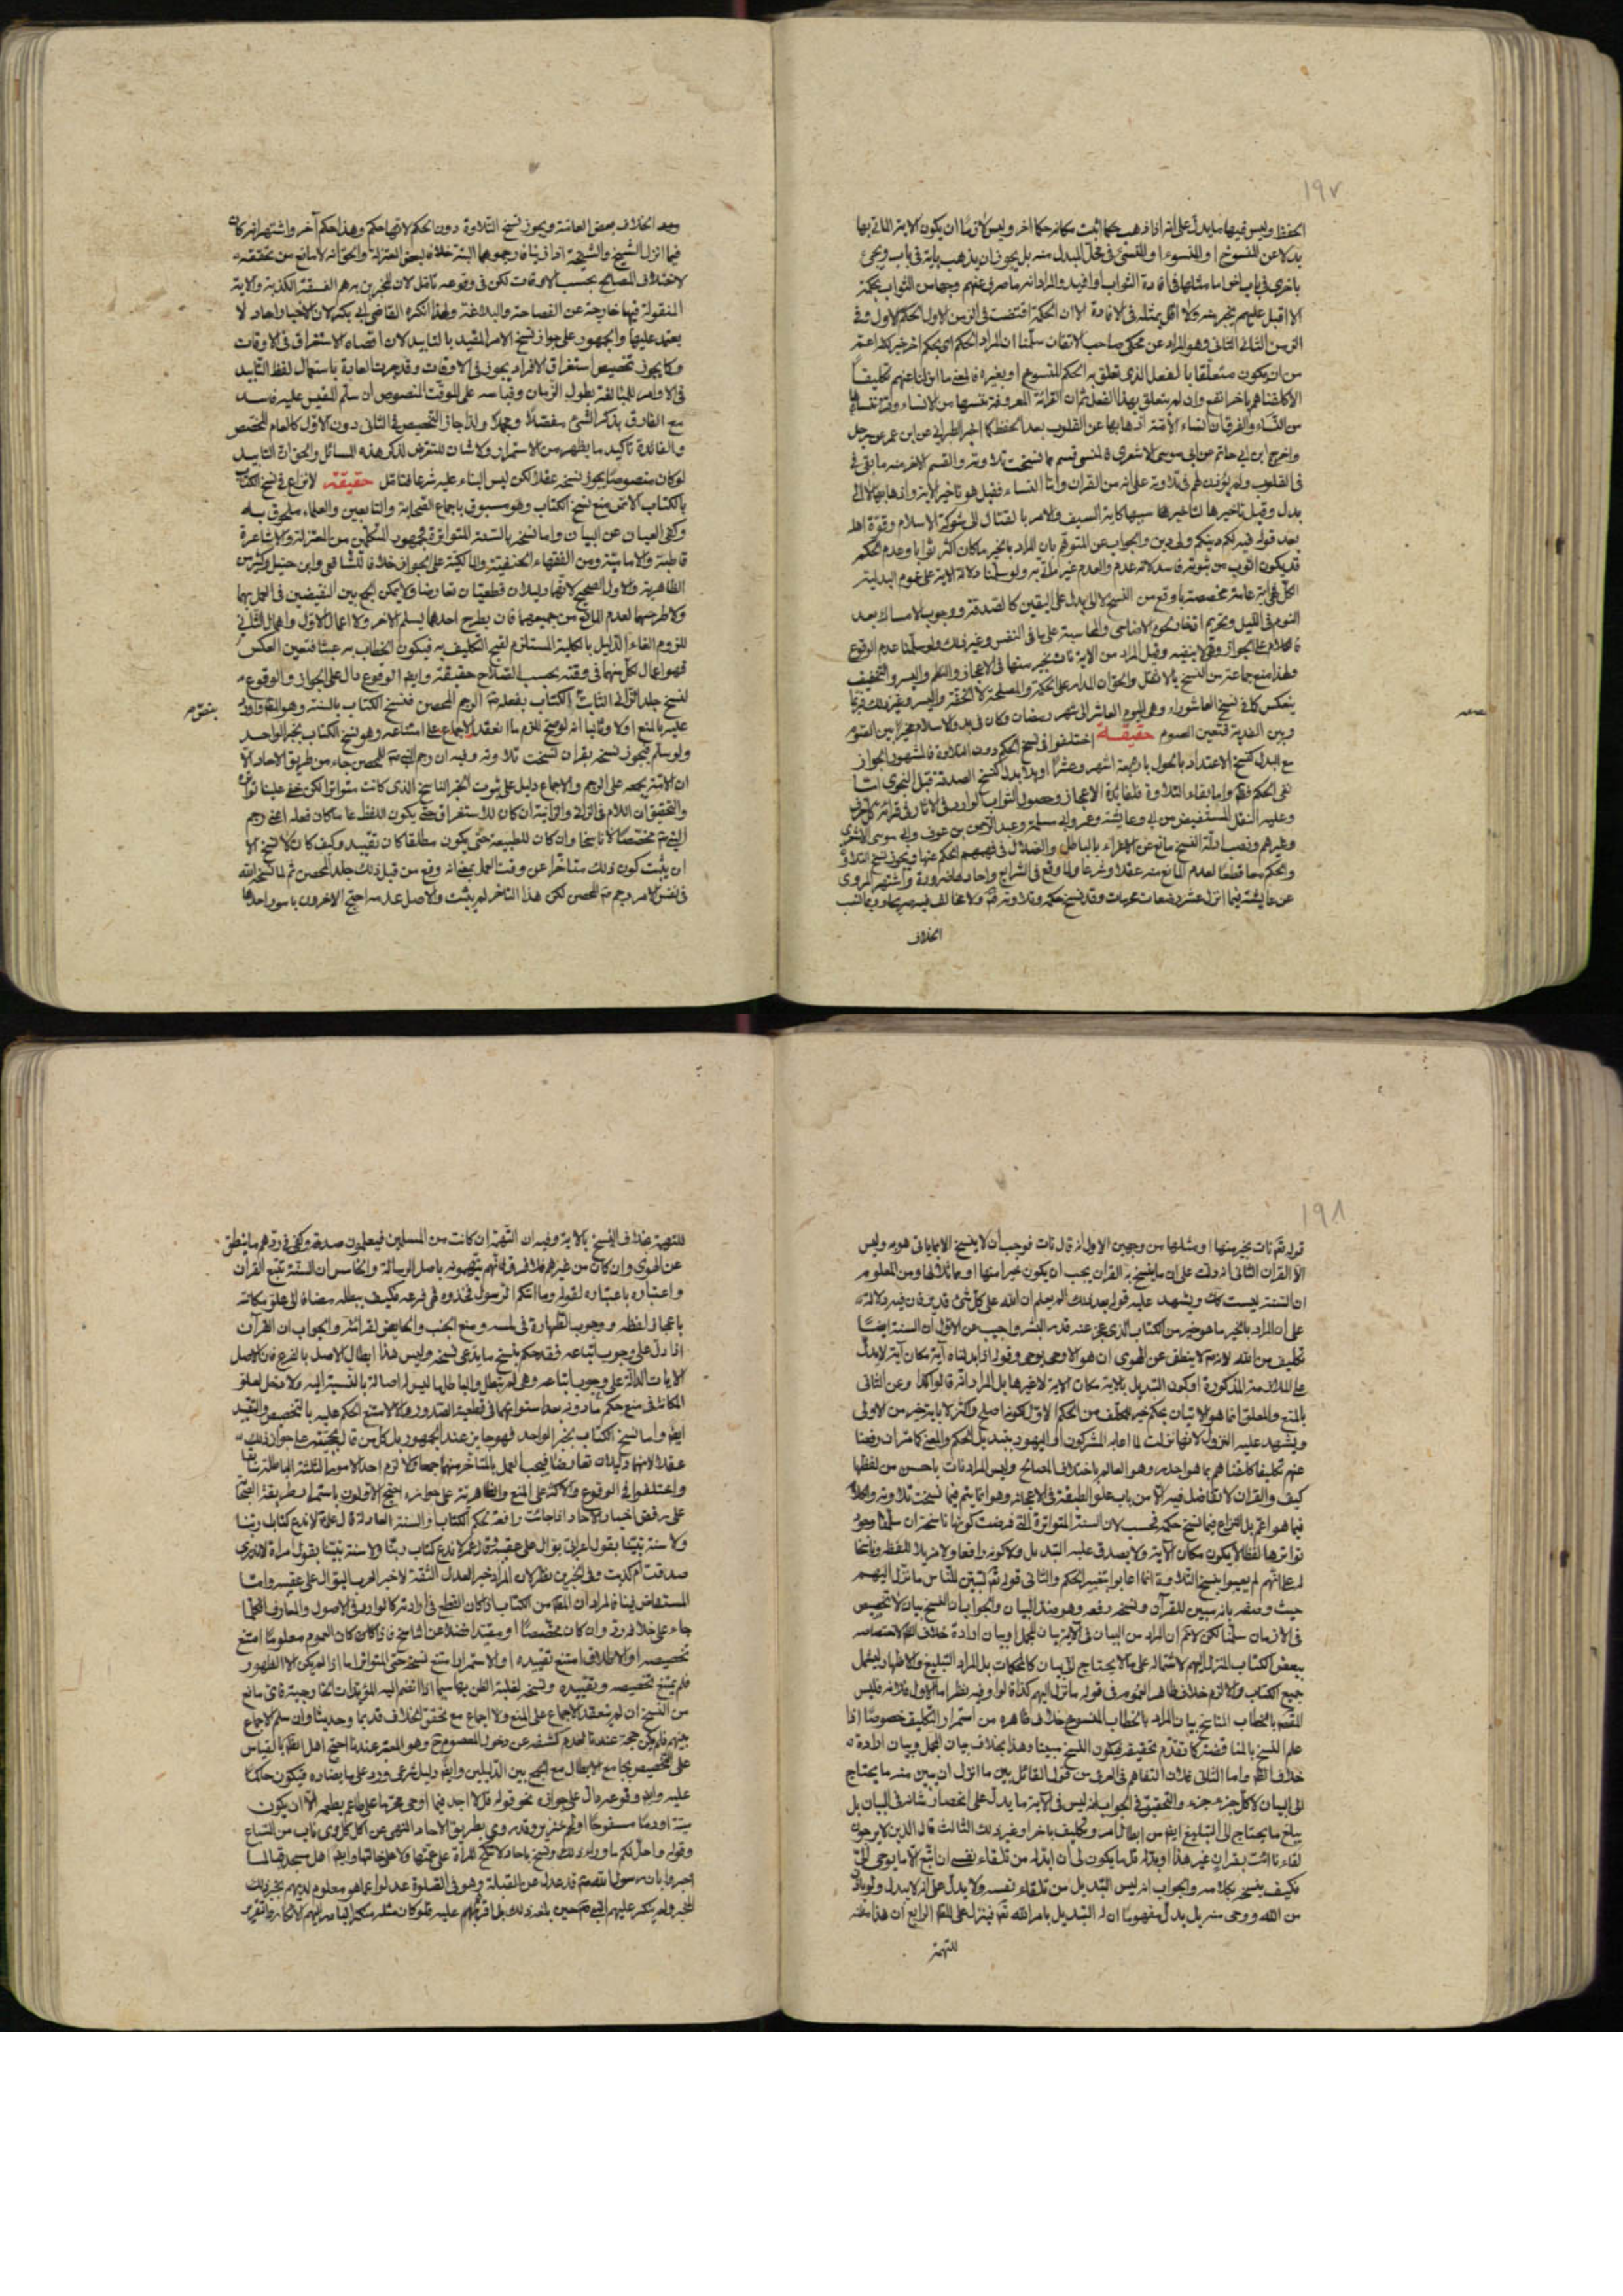 ١٩٧
الحفظ وليس فيها ما يدل على انه اذا ذهب حكما اثبت مكانه حكما اخر وليس لازما ان يكون الاية الماتي بها
بدلا عن المنسوخ او المنسوء او المنسئ في محل المبدل منه بل يجوز ان يذهب باية في باب ويجئ
باخرى في باب اخر
الثواب بحكمة
الحكمة اقتضت في الزمن الاول الحكم الاول وفي
الزمن الثاني الثاني وهو المراد عن محكى صاحب الاتقان سلمنا ان المراد الحكم اى بحكم اخر خير لكنه اعم
من ان يكون متعلقا بالفعل الذى تعلق به الحكم المنسوخ او بغيره فالمعنى ما ازلنا عنهم تكليفا
الا كلفناهم باخر انفع وان لم يتعلق بهذا الفعل ثم ان القرائة المعروفة ننسها من الانساء وقرئ ننساها
من النساء والفرق ان انساء الاية اذهابها عن القلوب بعد الحفظ كما اخبر الطبراني عن ابن عمر عن رجل
واخرج ابن ابي حاتم عن ابي موسى الاشعري فالمنسى قسم مما نسخت تلاوته والقسم الاخر منه ما بقي في
في القلوب ولم يؤذن لهم في تلاوته على انه من القران واما النساء فقيل هو تاخير الاية واذهابها لا الى
بدل وقيل تاخيرها لتاخير سببها كاية السيف والامر بالقتال الى شوكة الاسلام وقوة اهله
بعد قوله فيه لكم دينكم ولى دين والجواب عن المتوهم بان المراد بالخير ما كان اكثر ثوابا وعدم الحكم
قد يكون اثوب من ثبوته فاسد لانه عدم والعدم غير ماتى به ولو سلمنا دلالة الاية على عموم البدلية
الكل فهي اية عامة مخصصة بما وقع من النسخ لا الى بدل على اليقين كالصدقة ووجوب الامساك بعد
النوم في الليل وتحريم ادخار لحوم الاضاحي والمحاسبة على ما في النفس وغير ذلك ولو سلمنا عدم الوقوع
فالكلام على الجواز وهي لا ينفيه وقيل المراد من الاية نات بخير منها في الاعجاز والنظم واليسر والتخفيف
ولهذا منع جماعة من النسخ بالاثقل والحق ان المدار على الحكمة والمصلحة لا الخفة واليسر وغير ذلك فربما
ينعكس كما في نسخ العاشوراء وهي اليوم العاشر الى شهر رمضان وكان في بدو الاسلام مخيرا بين الصوم
وبين الفدية فتعين الصوم حقيقة اختلفوا في نسخ الحكم دون التلاوة فالمشهور الجواز
مع البدل كنسخ الاعتداد بالحول باربعة اشهر وعشرا او بلا بدل كنسخ الصدقة قبل النجوى اما
نفى الحكم فلما مر واما بقاء التلاوة فلفائدة الاعجاز وحصول الثواب الوارد في الاثار في قرائة كل حرف
وعليه النقل المستفيض من ابي وعايشة وعمر وابي سلمة وعبد الرحمن بن عوف وابي موسى الاشعري
وغيرهم ونصب ادلة النسخ مانع عن الاغراء بالباطل والضلال في فهمهم الحكم عنها ويجوز نسخ التلاوة
والحكم معا قطعا لعدم المانع منه عقلا وشرعا ولما وقع في الشرايع واحادها ضرورة واشتهر المروى
عن عايشة فيما انزل عشر رضعات محرمات وقد نسخ حكمه وتلاوته
الخلاف
وبعد الخلاف بعض العامة ويجوز نسخ التلاوة دون الحكم لانهما حكم وهذا حكم آخر واشتهر انه كان
فيما انزل الشيخ والشيخة اذا زنيا فارجموهما البتة خلافا لبعض المعتزلة والحق انه لا مانع من تحققه
لاختلاف المصالح بحسب الاوقات لكن في وقوعه تامل لان المخبرين به هم الفسقة الكذبة والاية
المنقولة فيها خارجة عن الفصاحة والبلاغة ولهذا انكره القاضى ابي بكر لان الاخبار احاد لا
يعتمد عليها والجمهور على جواز نسخ الامر المقيد بالتابيد لان اقصاه الاستغراق في الاوقات
وكما يجوز تخصيص استغراق الافراد يجوز في الاوقات وقد جرت العادة باستعمال لفظ التابيد
في الاوامر للمبالغة بطول الزمان وقياسه على الموقت المنصوص ان سلم المقيس عليه فاسد
مع الفارق بذكر الشئ مفصلا ومجملا ولذا جاز التخصيص في الثاني دون الاول كالعام المخصص
والفائدة تاكيد ما يظهر من الاستمرار ولا شان للتعرض لذكر هذه المسائل والحق ان التابيد
لو كان منصوصا يجوز نسخه عقلا لكن ليس البناء عليه شرعا فتامل حقيقة لا نزاع في نسخ الكتاب
بالكتاب الا من منع نسخ الكتاب وهو مسبوق باجماع الصحابة والتابعين والعلماء ملحوق به
وكفى العيان عن البيان واما نسخه بالسنة المتواترة فجمهور المتكلمين من المعتزلة والاشاعرة
قاطبة والامامية ومن الفقهاء الحنفية والمالكية على الجواز خلافا للشافعي وابن حنبل وكثير من
الظاهرية والاول الصحيح لانهما دليلان قطعيان تعارضا ولا يمكن الجمع بين النقيضين في العمل بهما
ولا طرحهما لعدم المانع من جميعهما فان بطرح احدهما يسلم الاخر ولا اعمال الاول واهمال الثاني
للزوم الغاء الدليل بالكلية المستلزم لقبح التكليف به فيكون الخطاب به عبثا فتعين العكس
فهو اعمال لكل منهما في وقته بحسب الصلاح حقيقة وايضا الوقوع دال على الجواز والوقوع
لنسخ جلد الزاني الثابت بالكتاب بفعله ص الرجم المحصن فنسخ الكتاب بالسنة وهو المقصود
عليه بالمنع اولا وثانيا انه لو صح للزم ما انعقد الاجماع على امتناعه وهو نسخ الكتاب بخبر الواحد
ولو سلم فيجوز نسخه بقران نسخت تلاوته وفيه ان رجم النبي ص للمحصن جاء من طريق الاحاد الا
ان الامة مجمعه على الرجم والاجماع دليل على ثبوت الخبر الناسخ الذى كانت متواترا لكن خفى علينا تواتره
والتحقيق ان اللام في الزانية والزاني ان كان للاستغراق حتى يكون اللفظ عاما كان فعله اعنى رجم
النبي ص مخصصا لا ناسخا وان كان للطبيعة حتى يكون مطلقا كان تقييد وكيف كان لا نسخ الا
ان يثبت كون ذلك متاخرا عن وقت العمل بمعنى انه وقع من قبل ذلك جلد المحصن ثم لما نسخه الله
في نفس الامر رجم ص المحصن لكن هذا التاخر لم يثبت والاصل عدمه احتج الاخرون بامور احدها
١٩٨
قوله تعالى نات بخير منها او مثلها من وجهين الاول انه قال نات فوجب ان لا ينسخ الا بما ياتى هو به وليس
الا القران الثاني انه دلت على ان ما ينسخ به القران يجب ان يكون خيرا منها او مماثلا لها ومن المعلوم
ان السنة ليست كذلك ويشهد عليه قوله بعد ذلك الم يعلم ان الله على كل شئ قدير فان فيه دلالة
على ان المراد بالخير ما هو خير من الكتاب الذى عجز عنه قدرة البشر واجيب عن الاول ان السنة ايضا
تكليف من الله لانه ص لا ينطق عن الهوى ان هو الا وحى يوحى وقوله اذا بدلنا آية مكان آية لا يدل
على الملازمة المذكورة او كون التبديل بالاية مكان الاية لا غيرها بل المراد انه قالوا كذا وعن الثاني
بالمنع والمعلق انما هو الاتيان بحكم خير للمكلف من الحكم الاول لكونه اصلح واكثر لا باية خير من الاولى
ويشهد عليه النزول لانها نزلت لما اعابه المشركون او اليهود بتبديل الحكم والمعنى كما مر ان رفعنا
عنهم تكليفا كلفناهم بما هو اجدر وهو العالم باختلاف المصالح وليس المراد نات باحسن من لفظها
كيف والقران لا تفاضل فيه الا من باب علو الطبقة في الاعجاز وهو انما يتم فيما نسخت تلاوته والكلام
فيما هو اعم بل النزاع فيما نسخ حكمه فحسب لان السنة المتواترة التي فرضت كونها ناسخة ان سلمنا وجود
تواترها لفظا لا يكون مكان الآية ولا يصدق عليه التبديل ولا كونه رافعا ولا مزيلا للفظه وناسخا
له على انهم لم يعيبوا بنسخ التلاوة انما اعابوا بتغيير الحكم والثاني قوله تعالى لتبين للناس ما نزل اليهم
حيث وصفه بانه مبين للقرآن ونسخه رفعه وهو ضد البيان والجواب ان النسخ بيان لا تخصيص
في الازمان سلمنا لكن لا نم ان المراد من البيان في الاية بيان للمجمل او بيان ارادة خلاف الظاهر لاختصاصه
ببعض الكتاب المنزل اليهم لاشتماله على ما لا يحتاج الى بيان كالمحكمات بل المراد التبليغ والاظهار ليشمل
جميع الكتاب والا لزم خلاف ظاهر العموم في قوله ما نزل اليهم كذا قالوا وفيه نظر اما الاول فلانه فليس
المقصود بالخطاب الناسخ بيان المراد بالخطاب المنسوخ خلاف ظاهره من استمرار التكليف خصوصا اذا
علم النسخ بالمناقضة كما تقدم تحقيقه فيكون النسخ مبينا وهذا بخلاف بيان المجمل وبيان ارادة
خلاف الظاهر واما الثاني فلان التفاهم في العرف من قول القائل بين ما انزل ان يبين منه ما يحتاج
الى البيان لا كل جزء جزء والتحقيق في الجواب انه ليس في الآية ما يدل على انحصار شانه في البيان بل
يبلغ ما يحتاج الى التبليغ ايضا من ابطال امر وتكليف باخر او غير ذلك الثالث قال الذين لا يرجون
لقاءنا ائت بقران غير هذا او بدله قل ما يكون لى ان ابدله من تلقاء نفسى ان اتبع الا ما يوحى الى
فكيف ينسخه بكلامه والجواب انه ليس التبديل من تلقاء نفسه ولا يدل على انه لا يبدل ولو باذن
من الله ووحى منه بل يدل مفهوما ان له التبديل بامر الله تعالى فينزل على المقصود الرابع ان هذا مظنة
للتهمة
للتهمة بخلاف النسخ بالاية وفيه ان التهمة ان كانت من المسلمين فيعلمون صدقه وكفى في ردهم ما ينطق
عن الهوى وان كان من غيرهم فلا فرق فانهم يتهمونه باصل الرسالة والخامس ان السنة تتبع القرآن
واعتباره باعتباره لقوله وما اتيكم الرسول فخذوه فهي فرعه فكيف يبطله مضافا الى علو مكانته
باعجاز لفظه ووجوب الطهارة في لمسه ومنع الجنب والحايض لقرائته والجواب ان القرآن
اذا دل على وجوب اتباعه فقد حكم بنسخ ما يدعى نسخه وليس هذا ابطال الاصل بالفرع فان الاصل
الايات الدالة على وجوب اتباعه وهي لم تبطل والباطل بها ليس له اصالة بالنسبة اليه ولا دخل لعلو
المكانة في منع حكم مادونه بعد استوائهما في قطعية الصدور والا لامتنع الحكم عليه بالتخصيص والتقييد
ايضا واما نسخ الكتاب بخبر الواحد فهو جايز عند الجمهور بل كل من قال بحجيته على جواز ذلك
عقلا لانهما دليلان تعارضا فيجب العمل بالمتاخر منهما جمعا والا لزم احد الامور الثلثة الباطلة سابقا
واختلفوا في الوقوع والاكثر على المنع والظاهرية على جوازه احتج الاولون باستمرار طريقة الصحابة
على رفض اخبار الاحاد اذا جائت رافعة لحكم الكتاب او السنة العادلة قال على ع لا ندع كتاب ربنا
ولا سنة نبينا بقول اعرابي بوال على عقبيه وقال عمر لا ندع كتاب ربنا ولا سنة نبينا بقول امراة لا ندرى
صدقت ام كذبت وفي الخبرين نظر لان المراد خبر العدل الثقة لا خبر اعرابى بوال على عقبيه واما
جاء على خلافه رد وان كان مخصصا او مقيدا فضلا عن الناسخ فاذا كان كان العموم معلوما امتنع
تخصيصه او الاطلاق امتنع تقييده او الاستمرار امتنع نسخه حتى المتواتر اما اذا لم يكن الا الظهور
فلم يمتنع تخصيصه وتقييده ونسخه لغلبة الظن بها سيما اذا انضم اليه المؤيدات الخارجية فاى مانع
من النسخ ان لم ينعقد الاجماع على المنع ولا اجماع مع تحقق الخلاف قديما وحديثا وان سلم الاجماع
بينهم فلم يكن حجة عندنا لعدم كشفه عن دخول المعصوم ع وهو المعتبر عندنا احتج اهل الظاهر بالقياس
على التخصيص بجامع الابطال مع الجمع بين الدليلين وايضا دليل شرعى ورد على ما يضاده فيكون حاكما
عليه وايضا وقوعه دال على جوازه نحو قوله قل لا اجد فيما اوحى محرما على طاعم يطعمه الا ان يكون
ميتة او دما مسفوحا او لحم خنزير وقد روى بطريق الاحاد النهى عن اكل كل ذى ناب من السباع
وقوله واحل لكم ما وراء ذلك ونسخ باحاد لا تنكح المراة على عمتها ولا على خالتها وايضا اهل مسجد قبا لما
اخبروا بان رسول الله ص قد عدل عن القبلة وهو في الصلوة عدلوا عما هو معلوم لديهم بخبر ذلك
المخبر ولم ينكر عليهم النبي ص